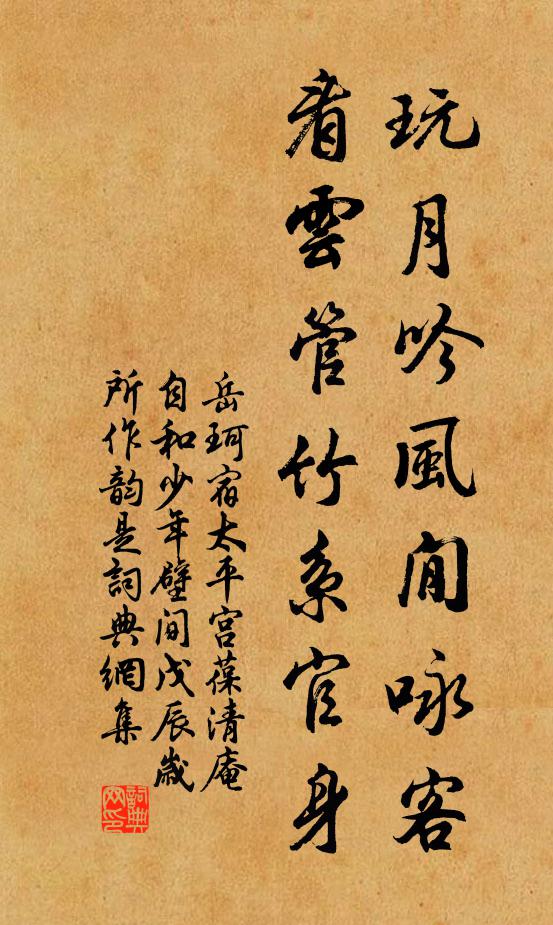 玩月吟風閒咏客
看雲管竹系官身
岳珂宿太平宮葆清庵
自和少年壁间戊辰歲
所作韵是詞典網集
詞典
网印